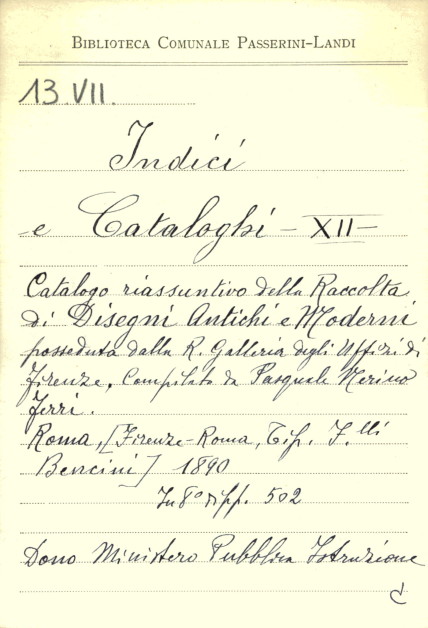 BIBLIOTECA COMUNALE PASSERINI-LANDI
13.VII.
Indici
e Cataloghi - XII -
Catalogo riassuntivo della Raccolta
di Disegni Antichi e Moderni
posseduta dalla R. Galleria degli Uffizi di
Firenze, Compilato da Pasquale Nerino
Ferri.
Roma, [Firenze-Roma, Tip. F.lli
Bencini] 1890
In 8° di pp. 502
Dono Ministero Pubblica Istruzione